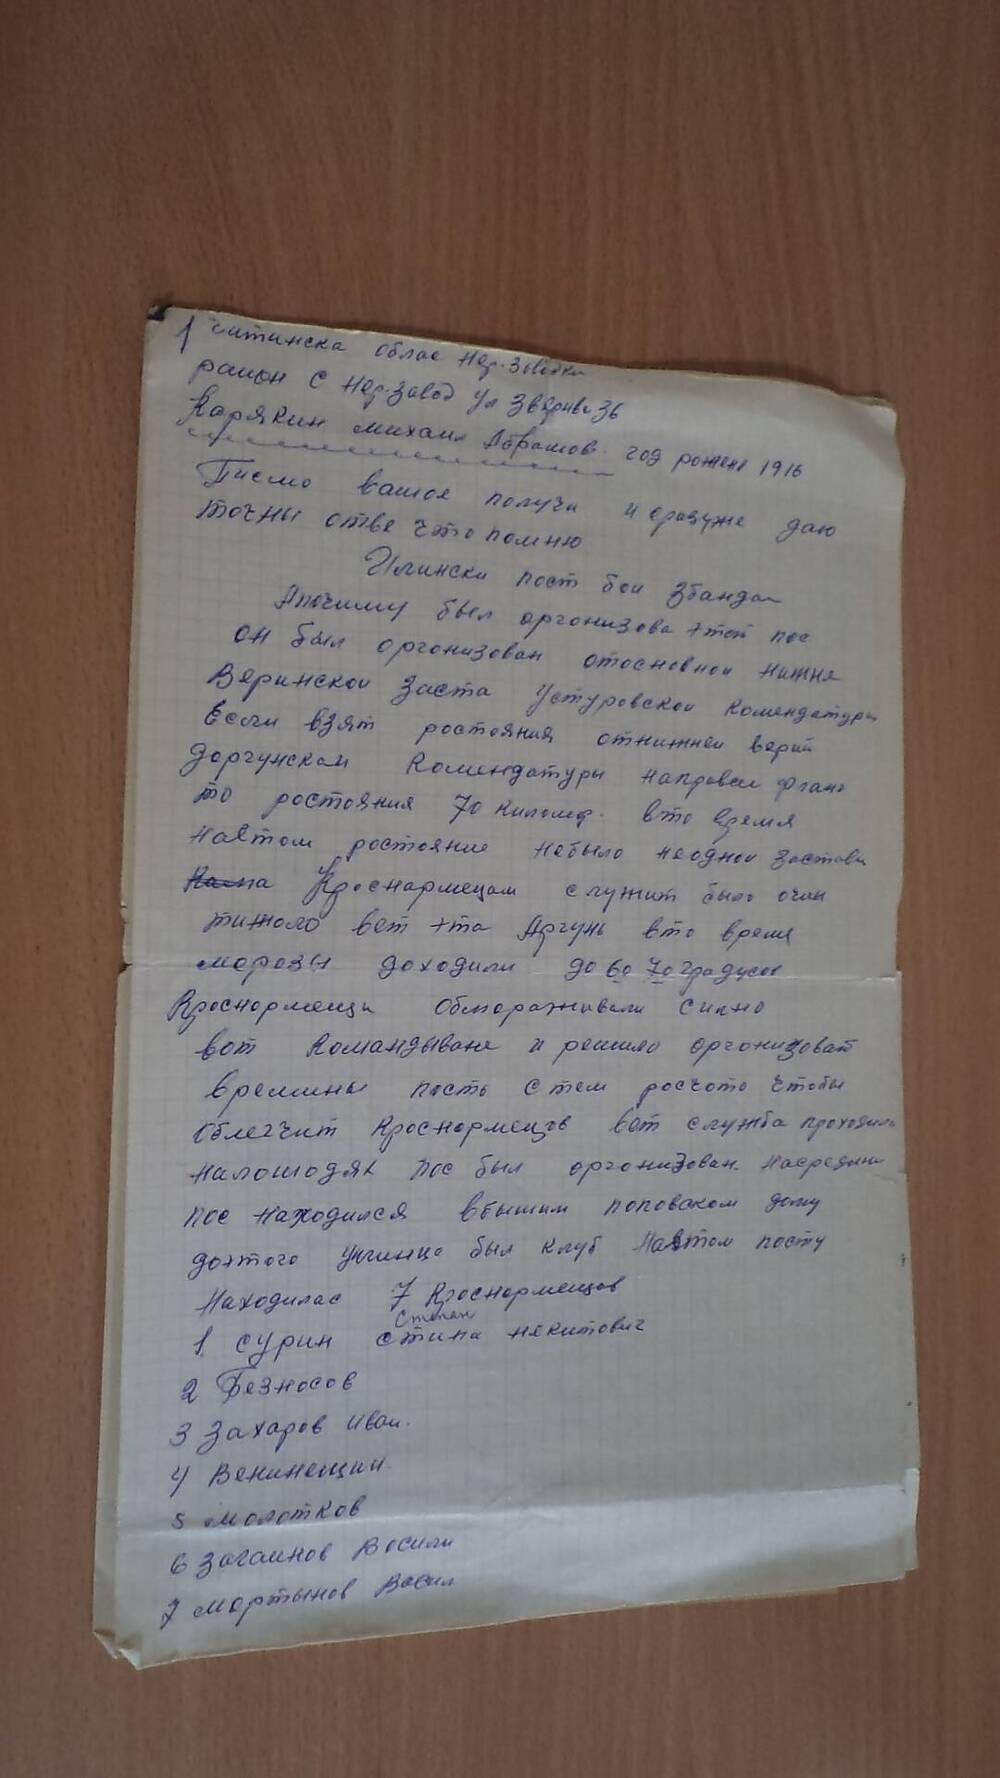 1 Читинска облас Нер. Заводски
район с Нер. Завод ул Зверива 36
Карякин михаил Абрамов. год рожен 1916
Писмо вашое получи и сразуже даю
точны отве что помню
Илински пост бои збандой
Апочиму был оргонизова этот пос
он был оргонизован отосновнои нижне
Веринской заста Устуровской Комендатуры
Если взят ростояния отнижнеи верии
доргунскам Комендатуры направои фланг
то ростояния 70 киломе. вто время
Наэтом ростояние небыло неоднои заставы
Красноармецам служит было очен
тижоло вет эта Аргунь вто время
морозы доходили до 60 70 градусов
Кроснормещи обмораживали силно
вот Командыване и решило оргонизоват
времины посто с тем росчото чтобы
облегчит Кроснормецов вет служба проходила
налошодях пос был оргонизован. насредини
пос находился вбышим поповском дому
доэтого был клуб Наэтом посту
Находилас 7 Кроснормецов
Степан
1. Сурин стипа никитович
2 Безносов
3 Захаров Иван.
4 Венинещин
5 молотков
6 Загаинов Восили
7 мортынов Васил